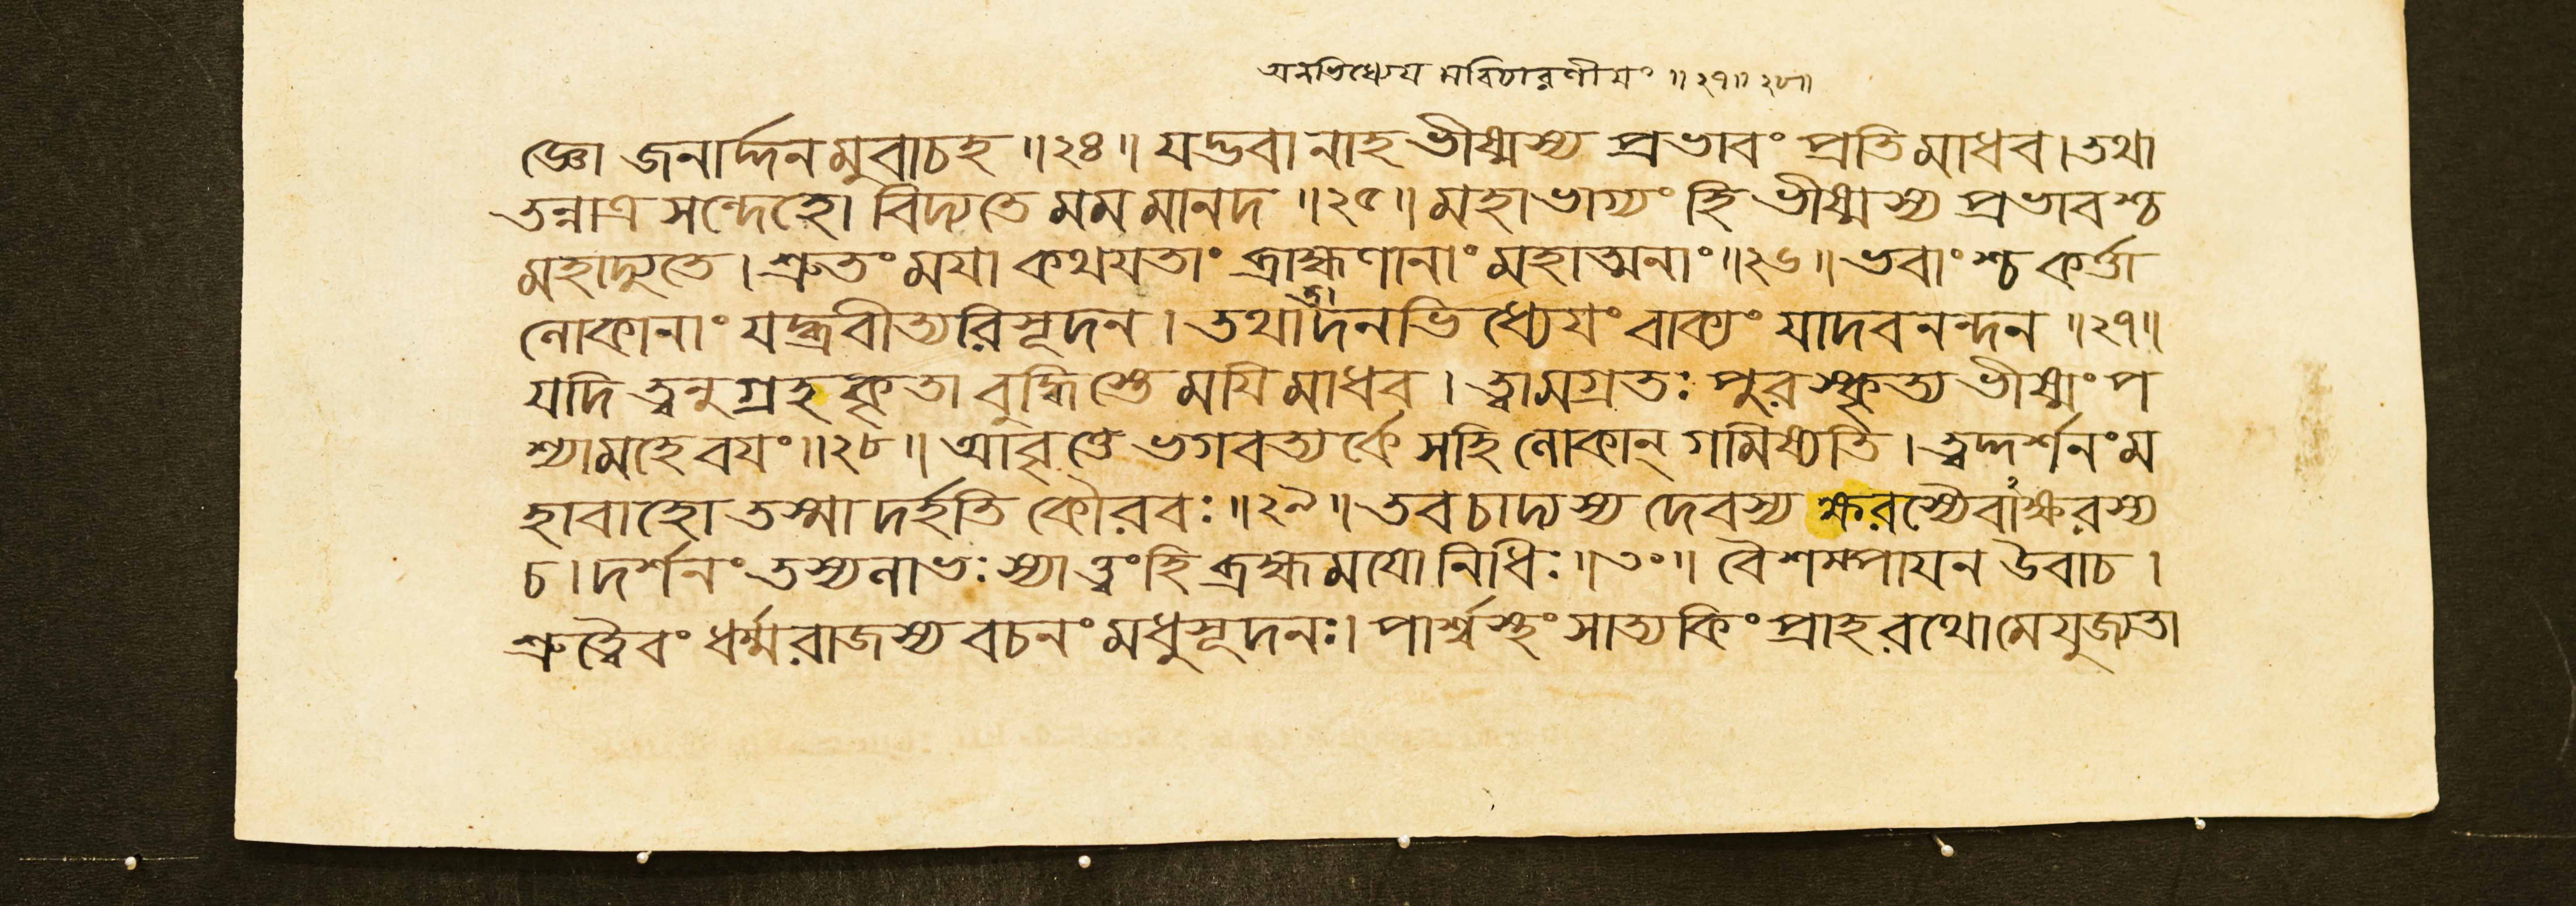 অনভিধ্যেয মবিচারণীযং ॥২৭॥২৮॥
জ্ঞো জনার্দ্দনমুবাচহ ॥২৪॥ যদ্ভবানাহ ভীষ্মস্য প্রভাবং প্রতি মাধব। তথা
তন্নাত্র সন্দেহো বিদ্যতে মম মানদ ॥২৫॥ মহাভাগ্যং হি ভীষ্মস্য প্রভাবশ্চ
মহাদ্যুতে। শ্রুতং মযা কথযতাং ব্রাহ্মণানাং মহাত্মনাং॥২৬॥ ভবাংশ্চ কর্ত্তা
লোকানাং যদ্ব্রবীত্যরিসূদন। তথা তদনভিধ্যেযং বাক্যং যাদবনন্দন ॥২৭॥
যদি ত্বনুগ্রহকৃতা বুদ্ধিস্তে মযি মাধব। ত্বামগ্রতঃ পুরস্কৃত্য ভীষ্মং প
শ্যামহে বযং॥২৮॥ আবৃত্তে ভগবত্যর্কে সহি লোকান্ গমিষ্যতি। ত্বদ্দর্শনং ম
হাবাহো তস্মাদর্হতি কৌরবঃ ॥২৯॥ তব চাদ্যস্য দেবস্য ক্ষরস্যৈবাক্ষরস্য
চ। দর্শনং তস্য লাভঃ স্যাত্ত্বং হি ব্রহ্মমযো নিধিঃ ॥৩০॥ বৈশম্পাযন উবাচ।
শ্রুত্বৈবং ধর্ম্মরাজস্য বচনং মধুসূদনঃ। পার্শ্বস্থং সাত্যকিং প্রাহ রথো মে যুজ্যতা